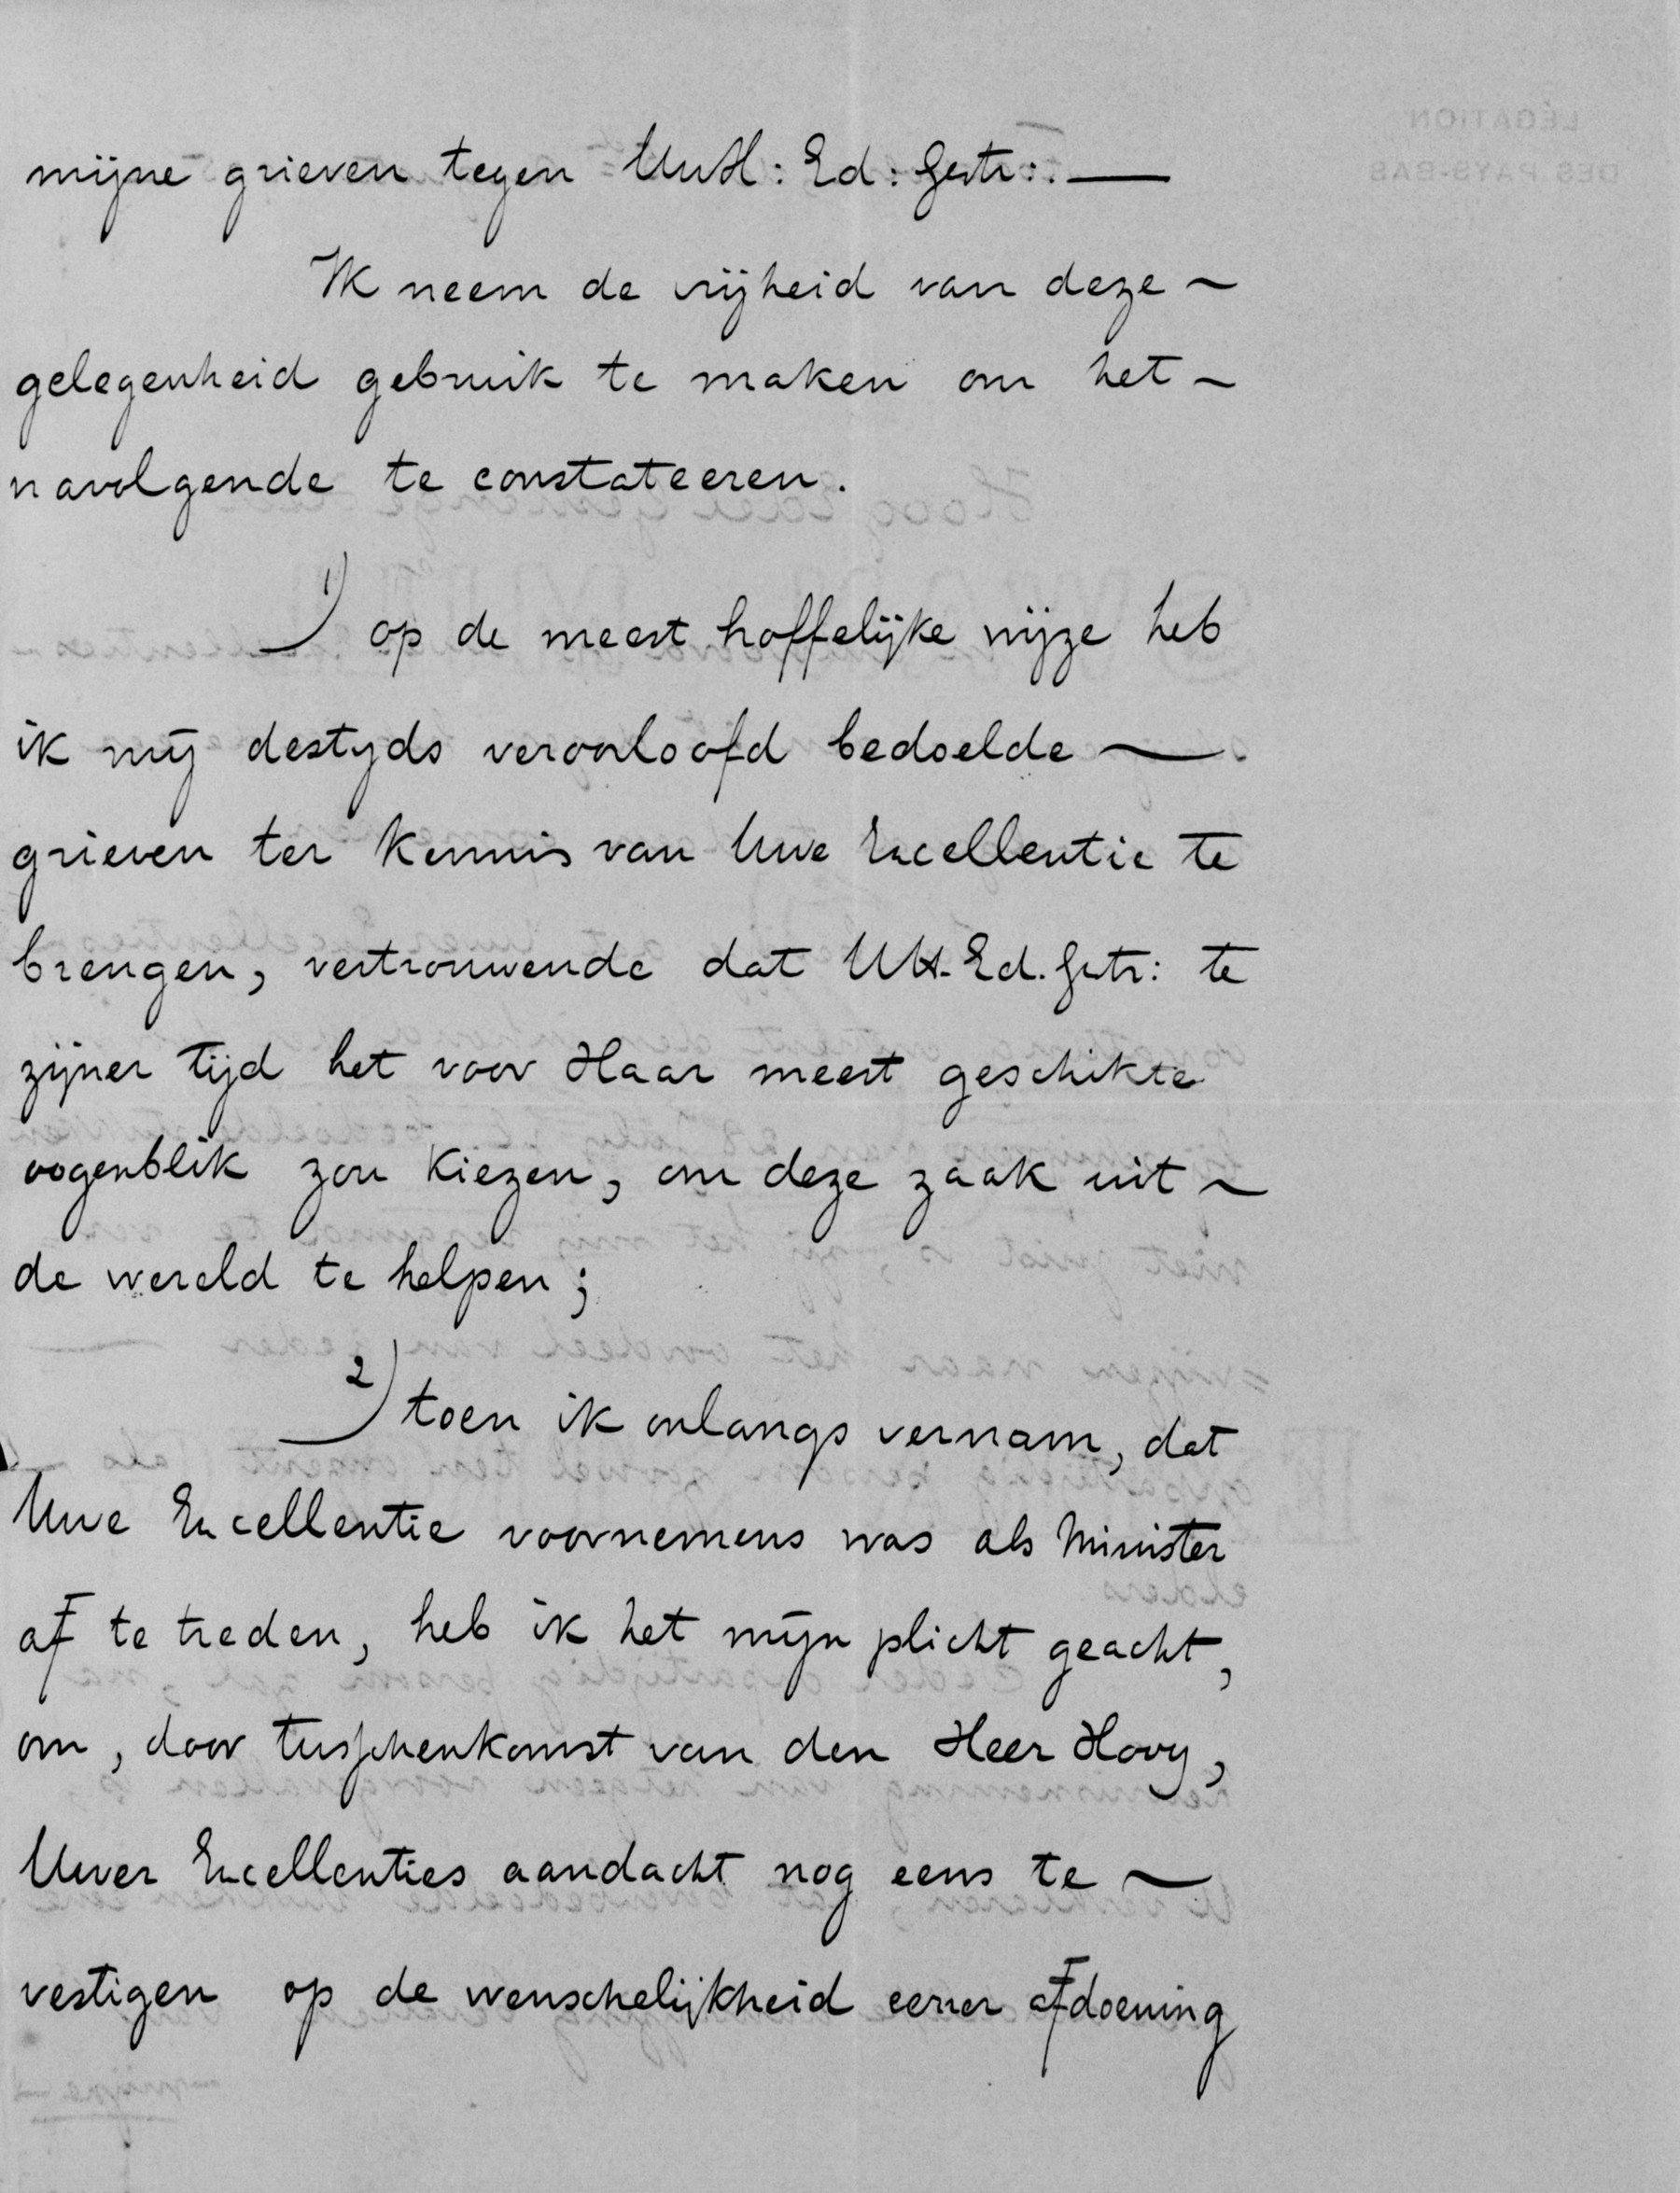 mijne grieven tegen UwH: Ed: Gestr:. —
Ik neem de vrijheid van deze ~
gelegenheid gebruik te maken om het ~
navolgende te constateeren.
1) op de meest hoffelijke wijze heb
ik mij destyds veroorloofd bedoelde —
grieven ter kennis van Uwe Excellentie te
brengen, vertrouwende dat UH. Ed. Gstr: te
zijner tijd het voor Haar meest geschikte
oogenblik zou kiezen, om deze zaak uit ~
de wereld te helpen;
2) toen ik onlangs vernam, dat
Uwe Excellentie voornemens was als Minister
af te treden, heb ik het mijn plicht geacht,
om, door tusschenkomst van den Heer Hooy,
Uwer Excellenties aandacht nog eens te ~
vestigen op de wenschelijkheid eener afdoening
LÉGATION
DES PAYS-BAS